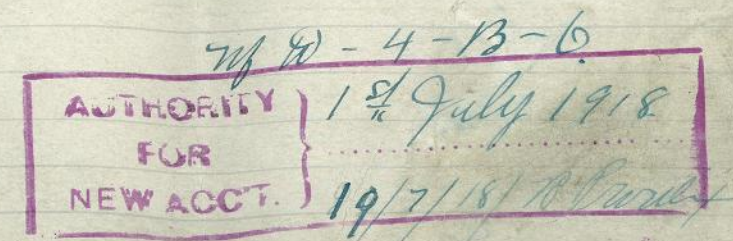 W - 4 - B - 6
AUTHORITY FOR NEW ACCT. } 1st July 1918
19/7/18/